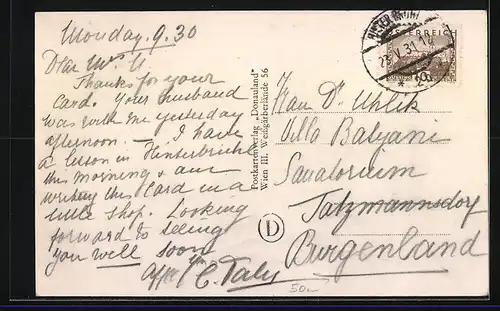 Monday. 9.30
Dear Mrs U.
Thanks for your
Card. Your husband
was with me yesterday
afternoon. — I have
a lesson in Hinterbrühl
this morning & am
writing this Card in a
little shop. Looking
forward to seeing
you well soon
Affly C. Daly
Postkartenverlag „Donauland"
Wien III. Weißgärberlände 56
D
ÖSTERREICH
Frau Dr Uhlik
Villa Batyani
Sanatorium
Tatzmannsdorf
Burgenland
50.-